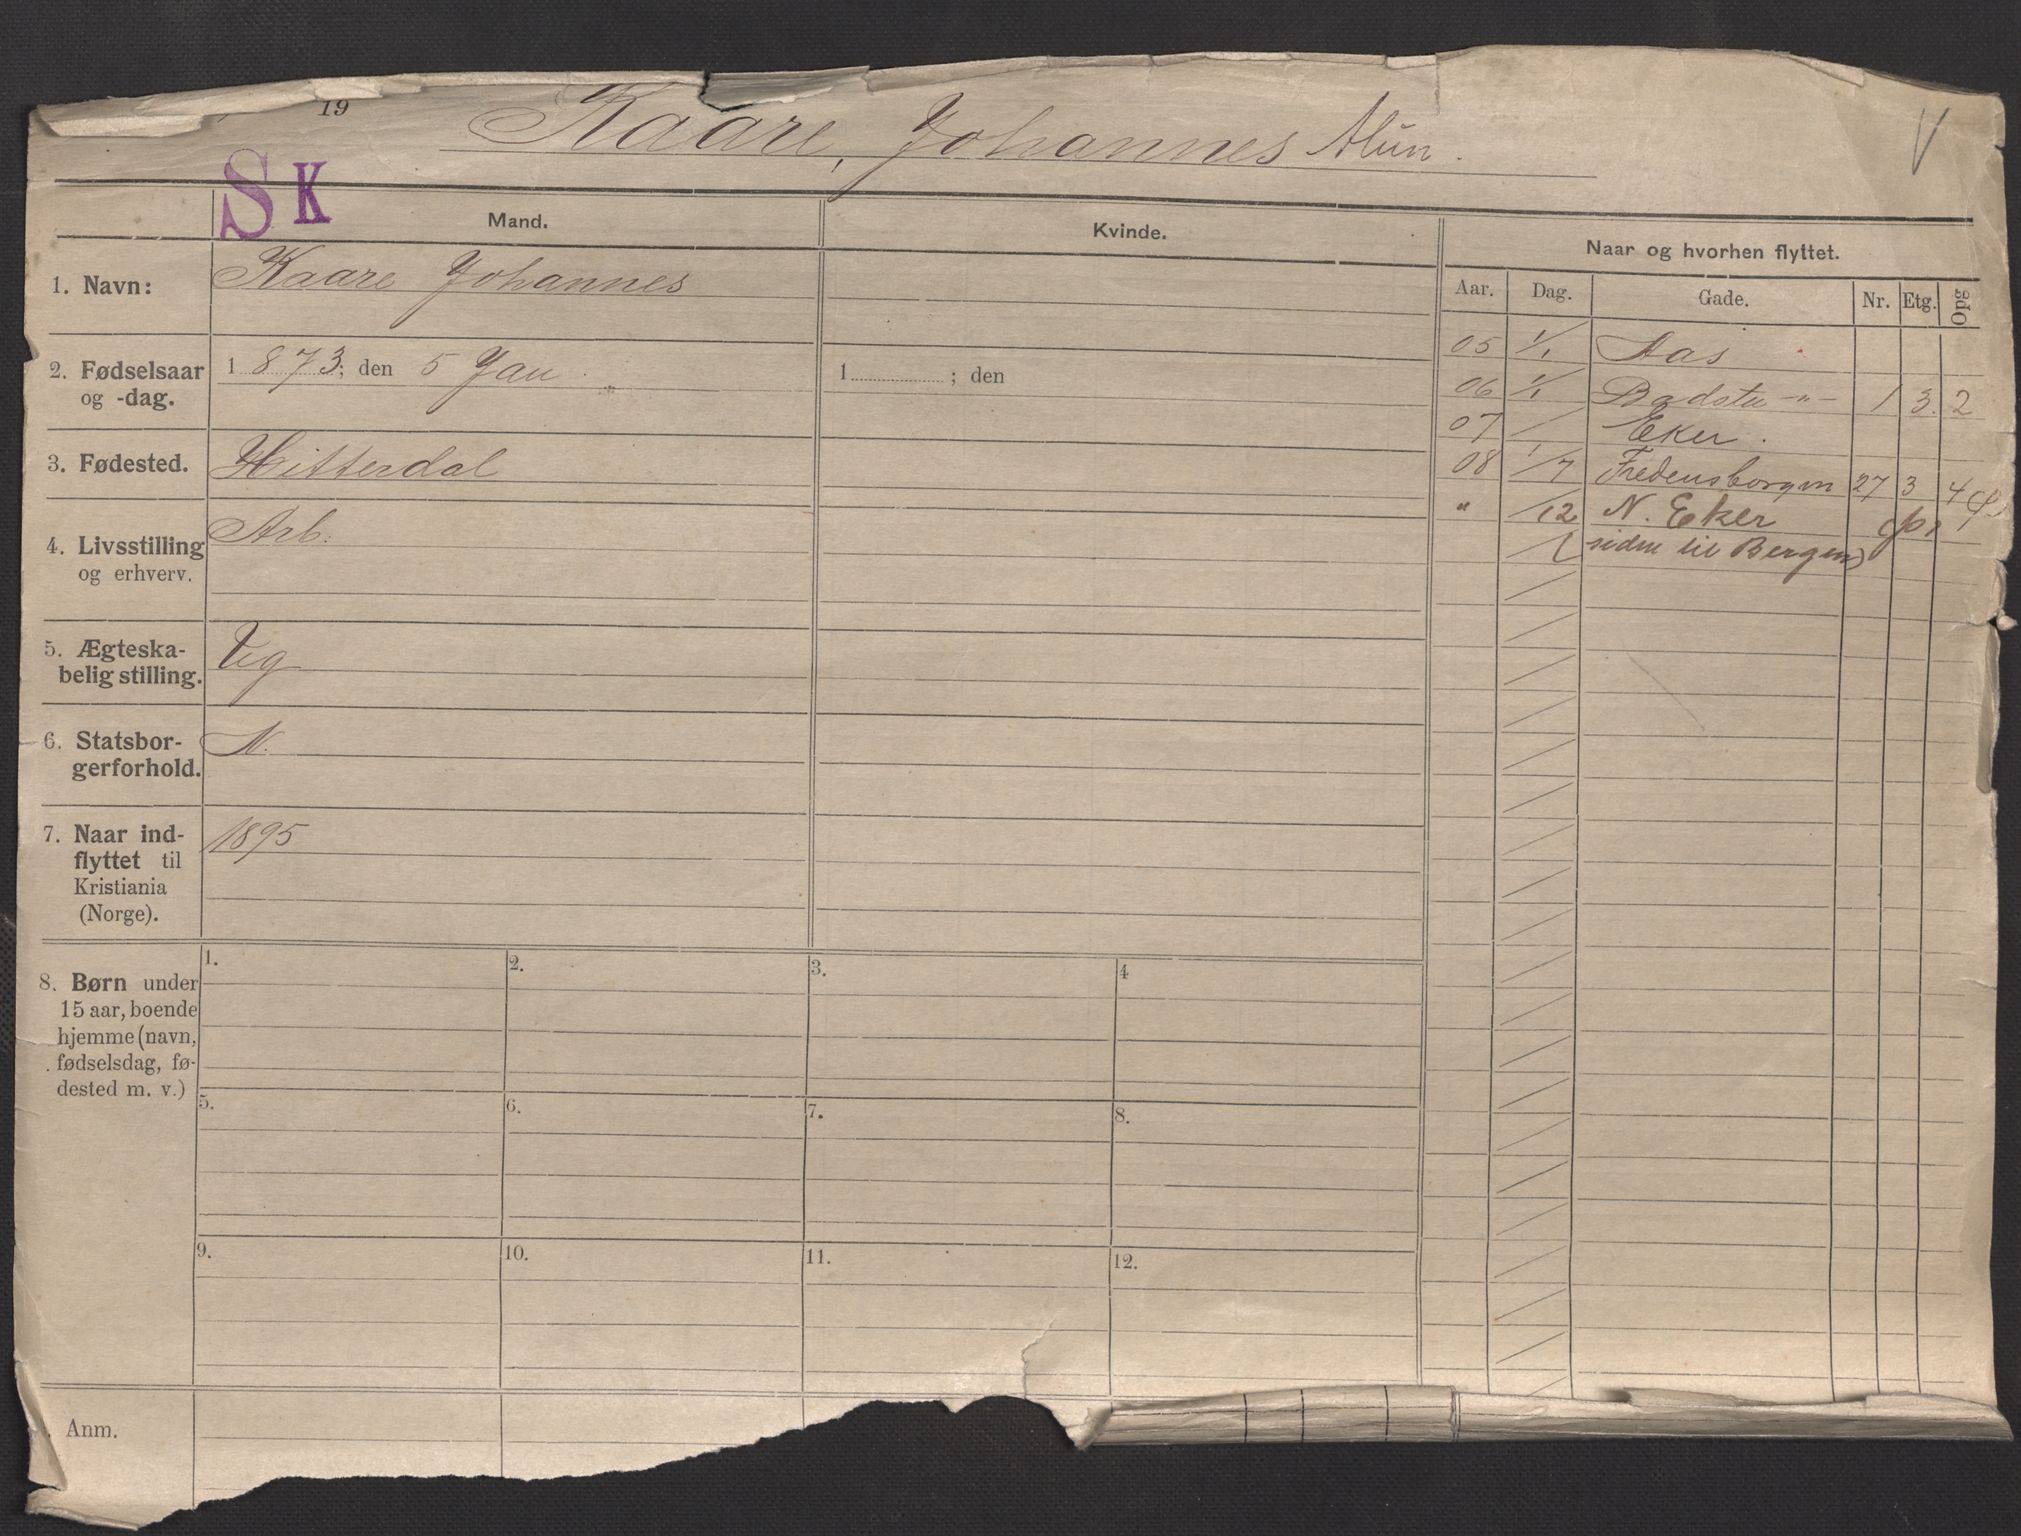 19
Kaare, Johannes Alun.
V
S K
Mand.
Kvinde.
Naar og hvorhen flyttet.
Aar. Dag. Gade. Nr. Etg. Opg
1. Navn: Kaare Johannes
2. Fødselsaar og -dag. 1873; den 5 Jan. 1 ; den
3. Fødested. Hitterdal
4. Livsstilling og erhverv. Arb.
5. Ægteska-
belig stilling. Ug
6. Statsbor-
gerforhold. N.
7. Naar ind-
flyttet til
Kristiania
(Norge). 1895
05 1/1 Aas
06 1/1 Badstu -"- 1 3. 2
07 / Eker.
08 1/7 Fredensborgvn 27 3 4
" /12 N. Eker
(sidm til Bergen)
8. Børn under
15 aar, boende
hjemme (navn,
fødselsdag, fø-
dested m. v.)
1. 2. 3. 4
5. 6. 7. 8.
9. 10. 11. 12.
Anm.